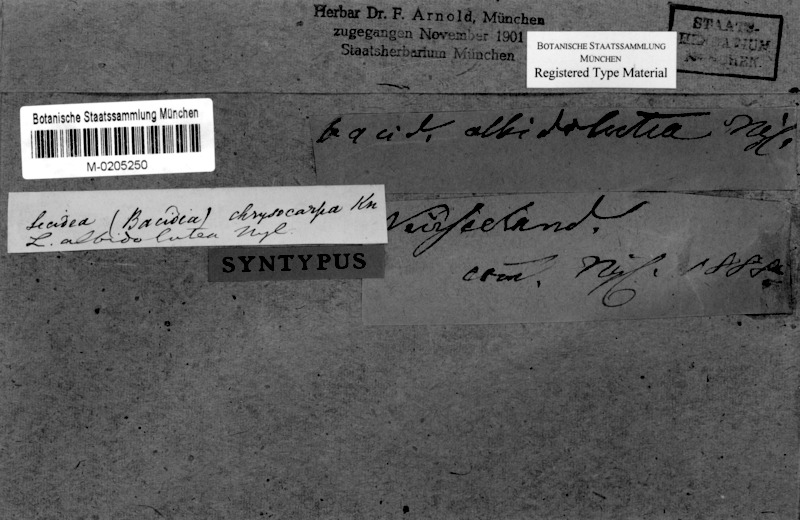 Herbar Dr. F. Arnold, München
zugegangen November 1901
Staatsherbarium München
BOTANISCHE STAATSSAMMLUNG
MÜNCHEN
Registered Type Material
STAATS-
HERBARIUM
MÜNCHEN.
Botanische Staatssammlung München
M-0205250
bacid. albidolutea Nyl.
Lecidea (Bacidia) chrysocarpa Kn
L. albidolutea Nyl.
SYNTYPUS
Neuseeland.
com. Nyl. 1888